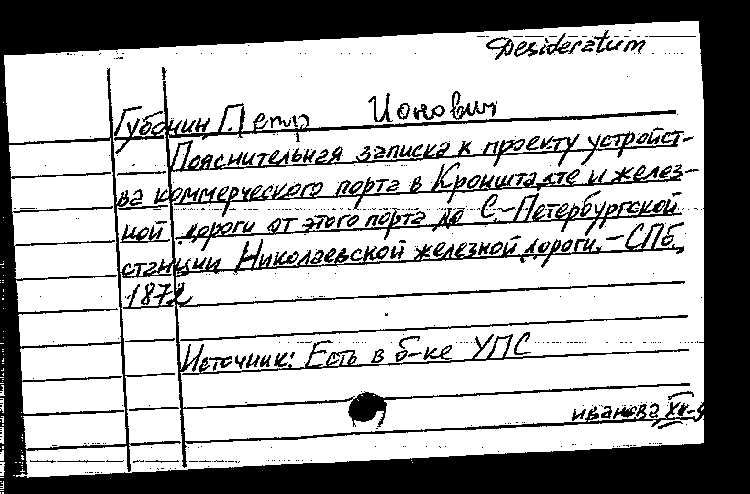 Desideratum
Губонин, Петр Ионович
Пояснительная записка к проекту устройст-
ва коммерческого порта в Кронштадте и желез-
ной дороги от этого порта до С.-Петербургской
станции Николаевской железной дороги. – СПб.,
1872
Источник: Есть в б-ке УПС
иванова,